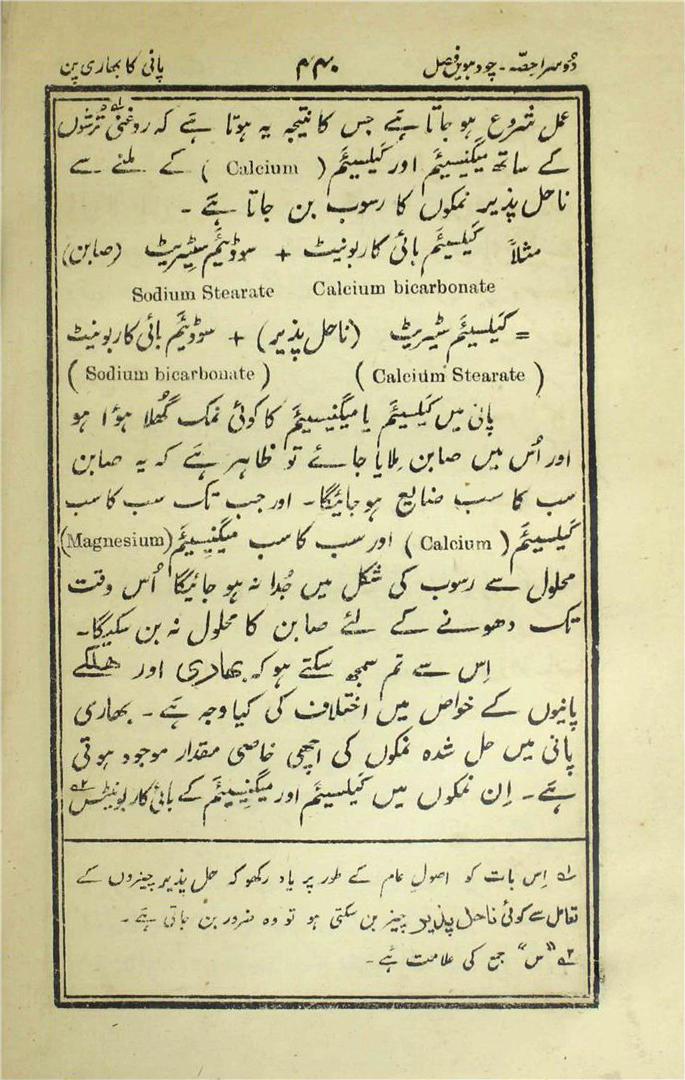 دُوسرا حِصّہ - چودہویں فصل ۴۴۰ پانی کا بھاری پن
عمل شروع ہو جاتا ہَے جس کا نتیجہ یہ ہوتا ہَے کہ روغنی تُرشوں ۱؎
کے ساتھ میگنیسیئَم اور کَیلسیئَم ( Calcium ) کے ملنے سے
ناحل پذیر نمکوں کا رسوب بن جاتا ہَے -
مثلاً کَیلسیئَم بائی کاربونیٹ + سوڈیئَم سٹِیریٹ (صابن)
Sodium Stearate Calcium bicarbonate
= کَیلسیئَم سٹِیریٹ (ناحل پذیر) + سوڈیئَم بائی کاربونیٹ
( Sodium bicarbonate ) ( Calcium Stearate )
پانی میں کَیلسیئَم یا میگنیسیئَم کا کوئی نمک گُھلا ہؤا ہو
اور اُس میں صابن مِلایا جائے تو ظاہر ہَے کہ یہ صابن
سب کا سب ضایع ہو جائیگا - اور جب تک سب کا سب
کَیلسیئَم ( Calcium ) اور سب کا سب میگنیسیئَم (Magnesium)
محلول سے رسوب کی شکل میں جُدا نہ ہو جائیگا اُس وقت
تک دھونے کے لئے صابن کا محلول نہ بن سکیگا -
اِس سے تم سمجھ سکتے ہو کہ بھاری اور ھلکے
پانیوں کے خواص میں اختلاف کی کیا وجہ ہَے - بھاری
پانی میں حل شدہ نمکوں کی اچھی خاصی مقدار موجود ہوتی
ہَے - اِن نمکوں میں کَیلسیئَم اور میگنیسیئَم کے بائی کاربونیٹس ۲؎
۱؎ اِس بات کو اصولِ عام کے طور پر یاد رکھو کہ حل پذیر چیزوں کے
تعامل سے کوئی ناحل پذیر چیز بن سکتی ہو تو وہ ضرور بن جاتی ہَے -
۲؎ "س" جمع کی علامت ہَے -